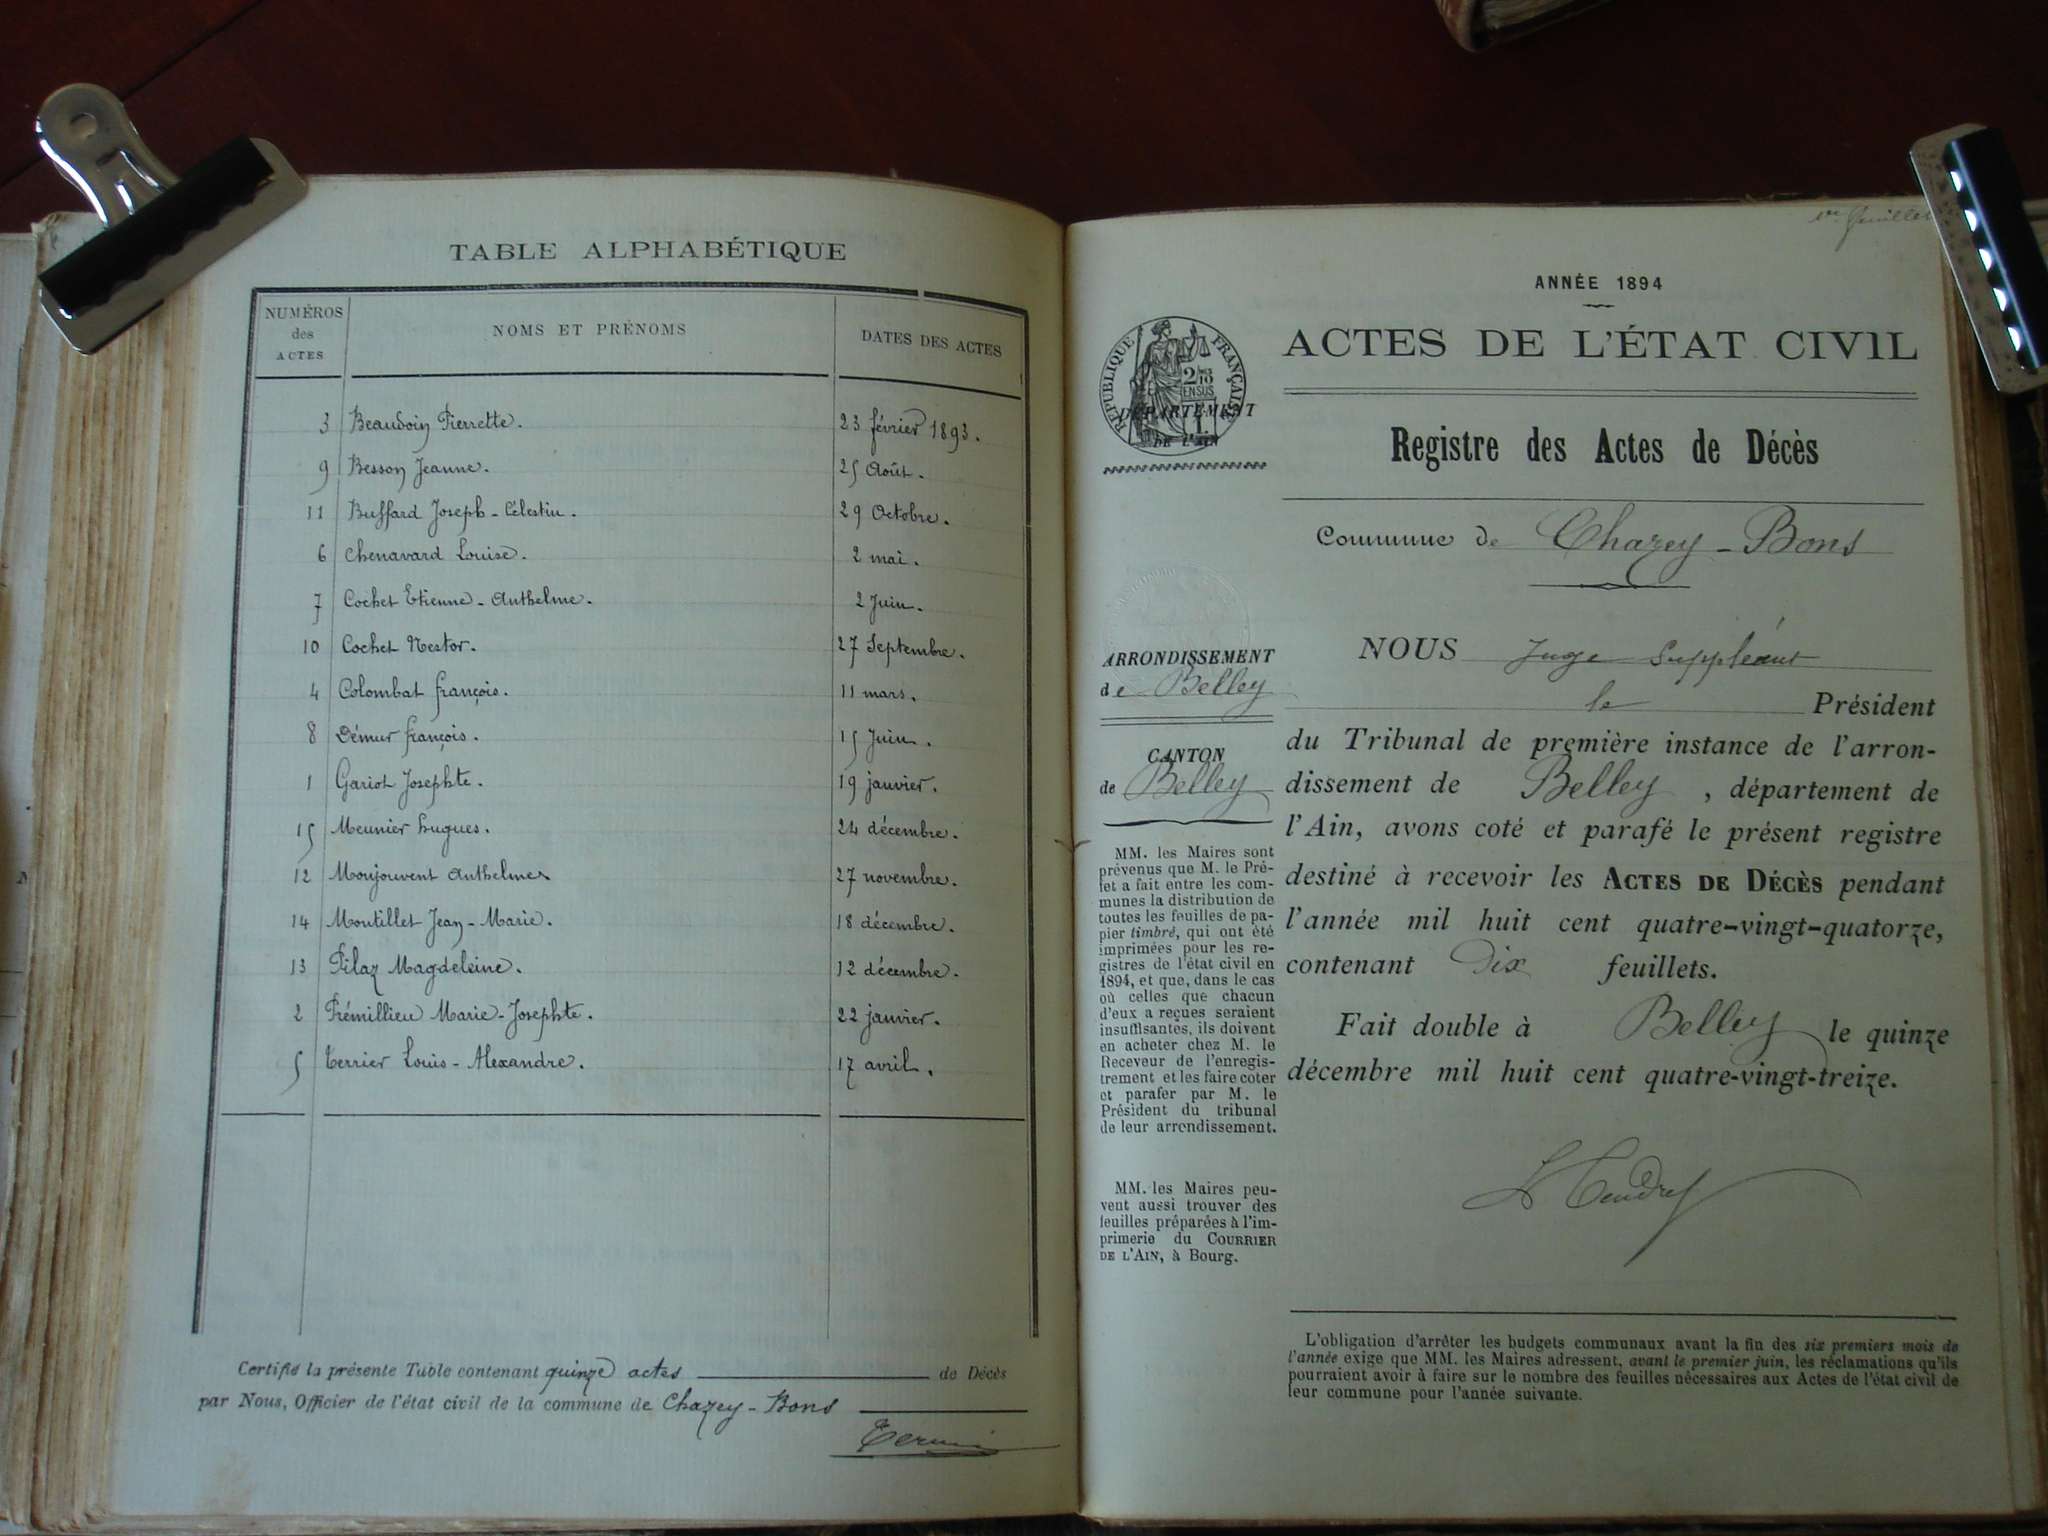 TABLE ALPHABÉTIQUE
NUMÉROS des ACTES NOMS ET PRÉNOMS DATES DES ACTES
3 Beaudoin Pierrette. 23 février 1893.
9 Besson Jeanne. 25 Août.
11 Buffard Joseph-Célestin. 29 Octobre.
6 Chenavard Louise. 2 mai.
7 Cochet Etienne-Anthelme. 2 Juin.
10 Cochet Nestor. 27 Septembre.
4 Colombat françois. 11 mars.
8 Démur françois. 15 Juin.
1 Gariot Josephte. 19 janvier.
15 Meunier hugues. 24 décembre.
12 Monjouvent Anthelme 27 novembre.
14 Montillet Jean-Marie. 18 décembre.
13 Pilaz Magdeleine. 12 décembre.
2 Prémillieu Marie-Josephte. 22 janvier.
5 Terrier Louis-Alexandre. 17 avril.
Certifié la présente Table contenant quinze actes de Décès
par Nous, Officier de l'état civil de la commune de Chazey-Bons
1er feuillet
ANNÉE 1894
ACTES DE L'ÉTAT CIVIL
RÉPUBLIQUE FRANÇAISE
2/10 EN SUS
DÉPARTEMENT
DE L'AIN
Registre des Actes de Décès
Commune de Chazey-Bons
ARRONDISSEMENT
de Belley
CANTON
de Belley
MM. les Maires sont
prévenus que M. le Pré-
fet a fait entre les com-
munes la distribution de
toutes les feuilles de pa-
pier timbré, qui ont été
imprimées pour les re-
gistres de l'état civil en
1894, et que, dans le cas
où celles que chacun
d'eux a reçues seraient
insuffisantes, ils doivent
en acheter chez M. le
Receveur de l'enregis-
trement et les faire coter
et parafer par M. le
Président du tribunal
de leur arrondissement.
MM. les Maires peu-
vent aussi trouver des
feuilles préparées à l'im-
primerie du COURRIER
DE L'AIN, à Bourg.
NOUS Juge Suppléant
le Président
du Tribunal de première instance de l'arron-
dissement de Belley, département de
l'Ain, avons coté et parafé le présent registre
destiné à recevoir les ACTES DE DÉCÈS pendant
l'année mil huit cent quatre-vingt-quatorze,
contenant Dix feuillets.
Fait double à Belley le quinze
décembre mil huit cent quatre-vingt-treize.
L'obligation d'arrêter les budgets communaux avant la fin des six premiers mois de
l'année exige que MM. les Maires adressent, avant le premier juin, les réclamations qu'ils
pourraient avoir à faire sur le nombre des feuilles nécessaires aux Actes de l'état civil de
leur commune pour l'année suivante.